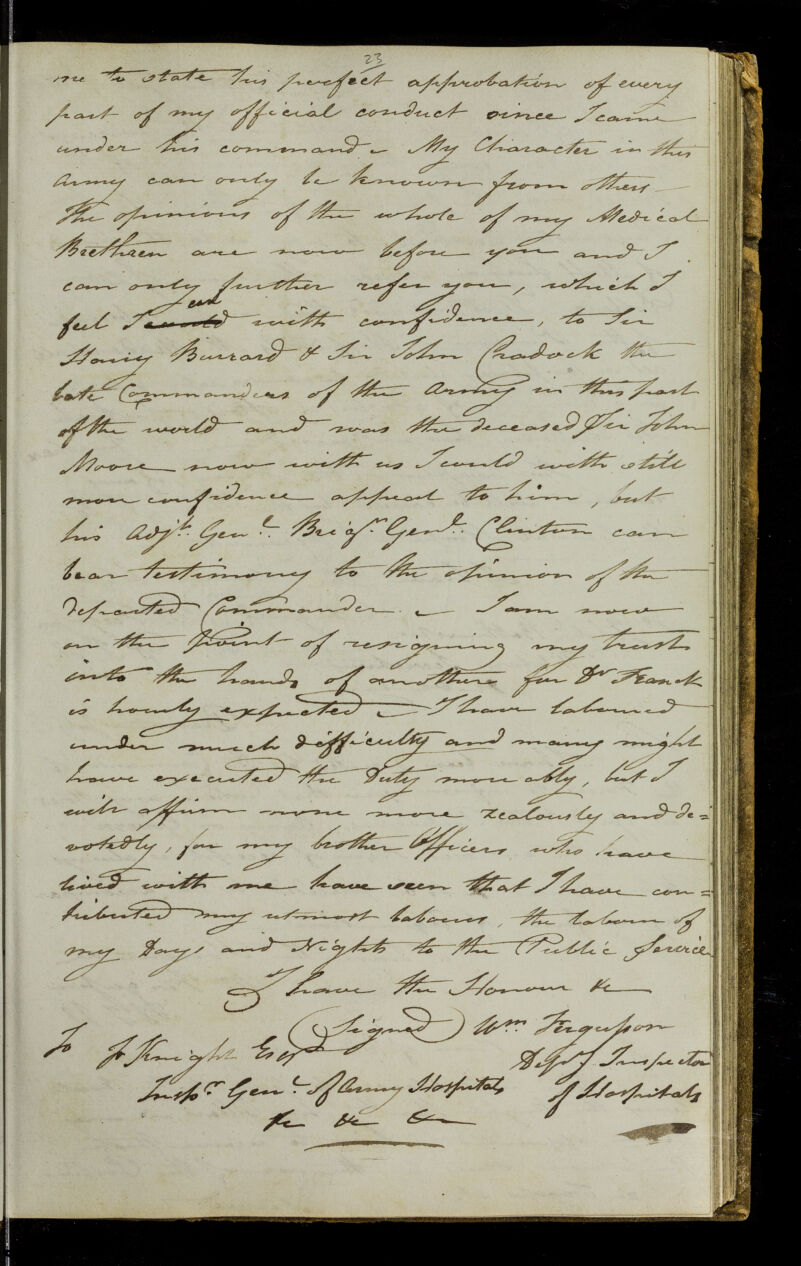 23
me to state his perfect approbation of every
part of my official conduct since I came
under his command – My Character in this
Army can only be known from others –
The opinions of the whole of my Medical
Brethren are now before you and I
can only further refer you, which I
feel I can with confidence, to Sir
Harry Burrard & Sir John Cradock the
late Commanders of the Army in this part
of the world and was the deceased Sir John
Moore now with us I could with still
more confidence appeal to him, but
his Adjt. Genl. Brigr. Genl. Clinton can
bear testimony to the opinion of the
departed Commander. – I am now
on the point of resigning my trust
into the hands of another for Dr Franck
is hourly expected – I have laboured
under much difficulty and many might
have executed the Duty more ably, but I
will affirm none more zealously and de=
votedly, for my brother Officers who have
lived with me have seen that I have con=
tributed my utmost labours, the labour of
my Days and Nights to the Public Service
I have the Honour &c
(Signed) Wm. Fergusson
To Fr Knight Esqr Depy Inspector
Inspr. Genl. of Army Hospitals of Hospitals
&c &c &c